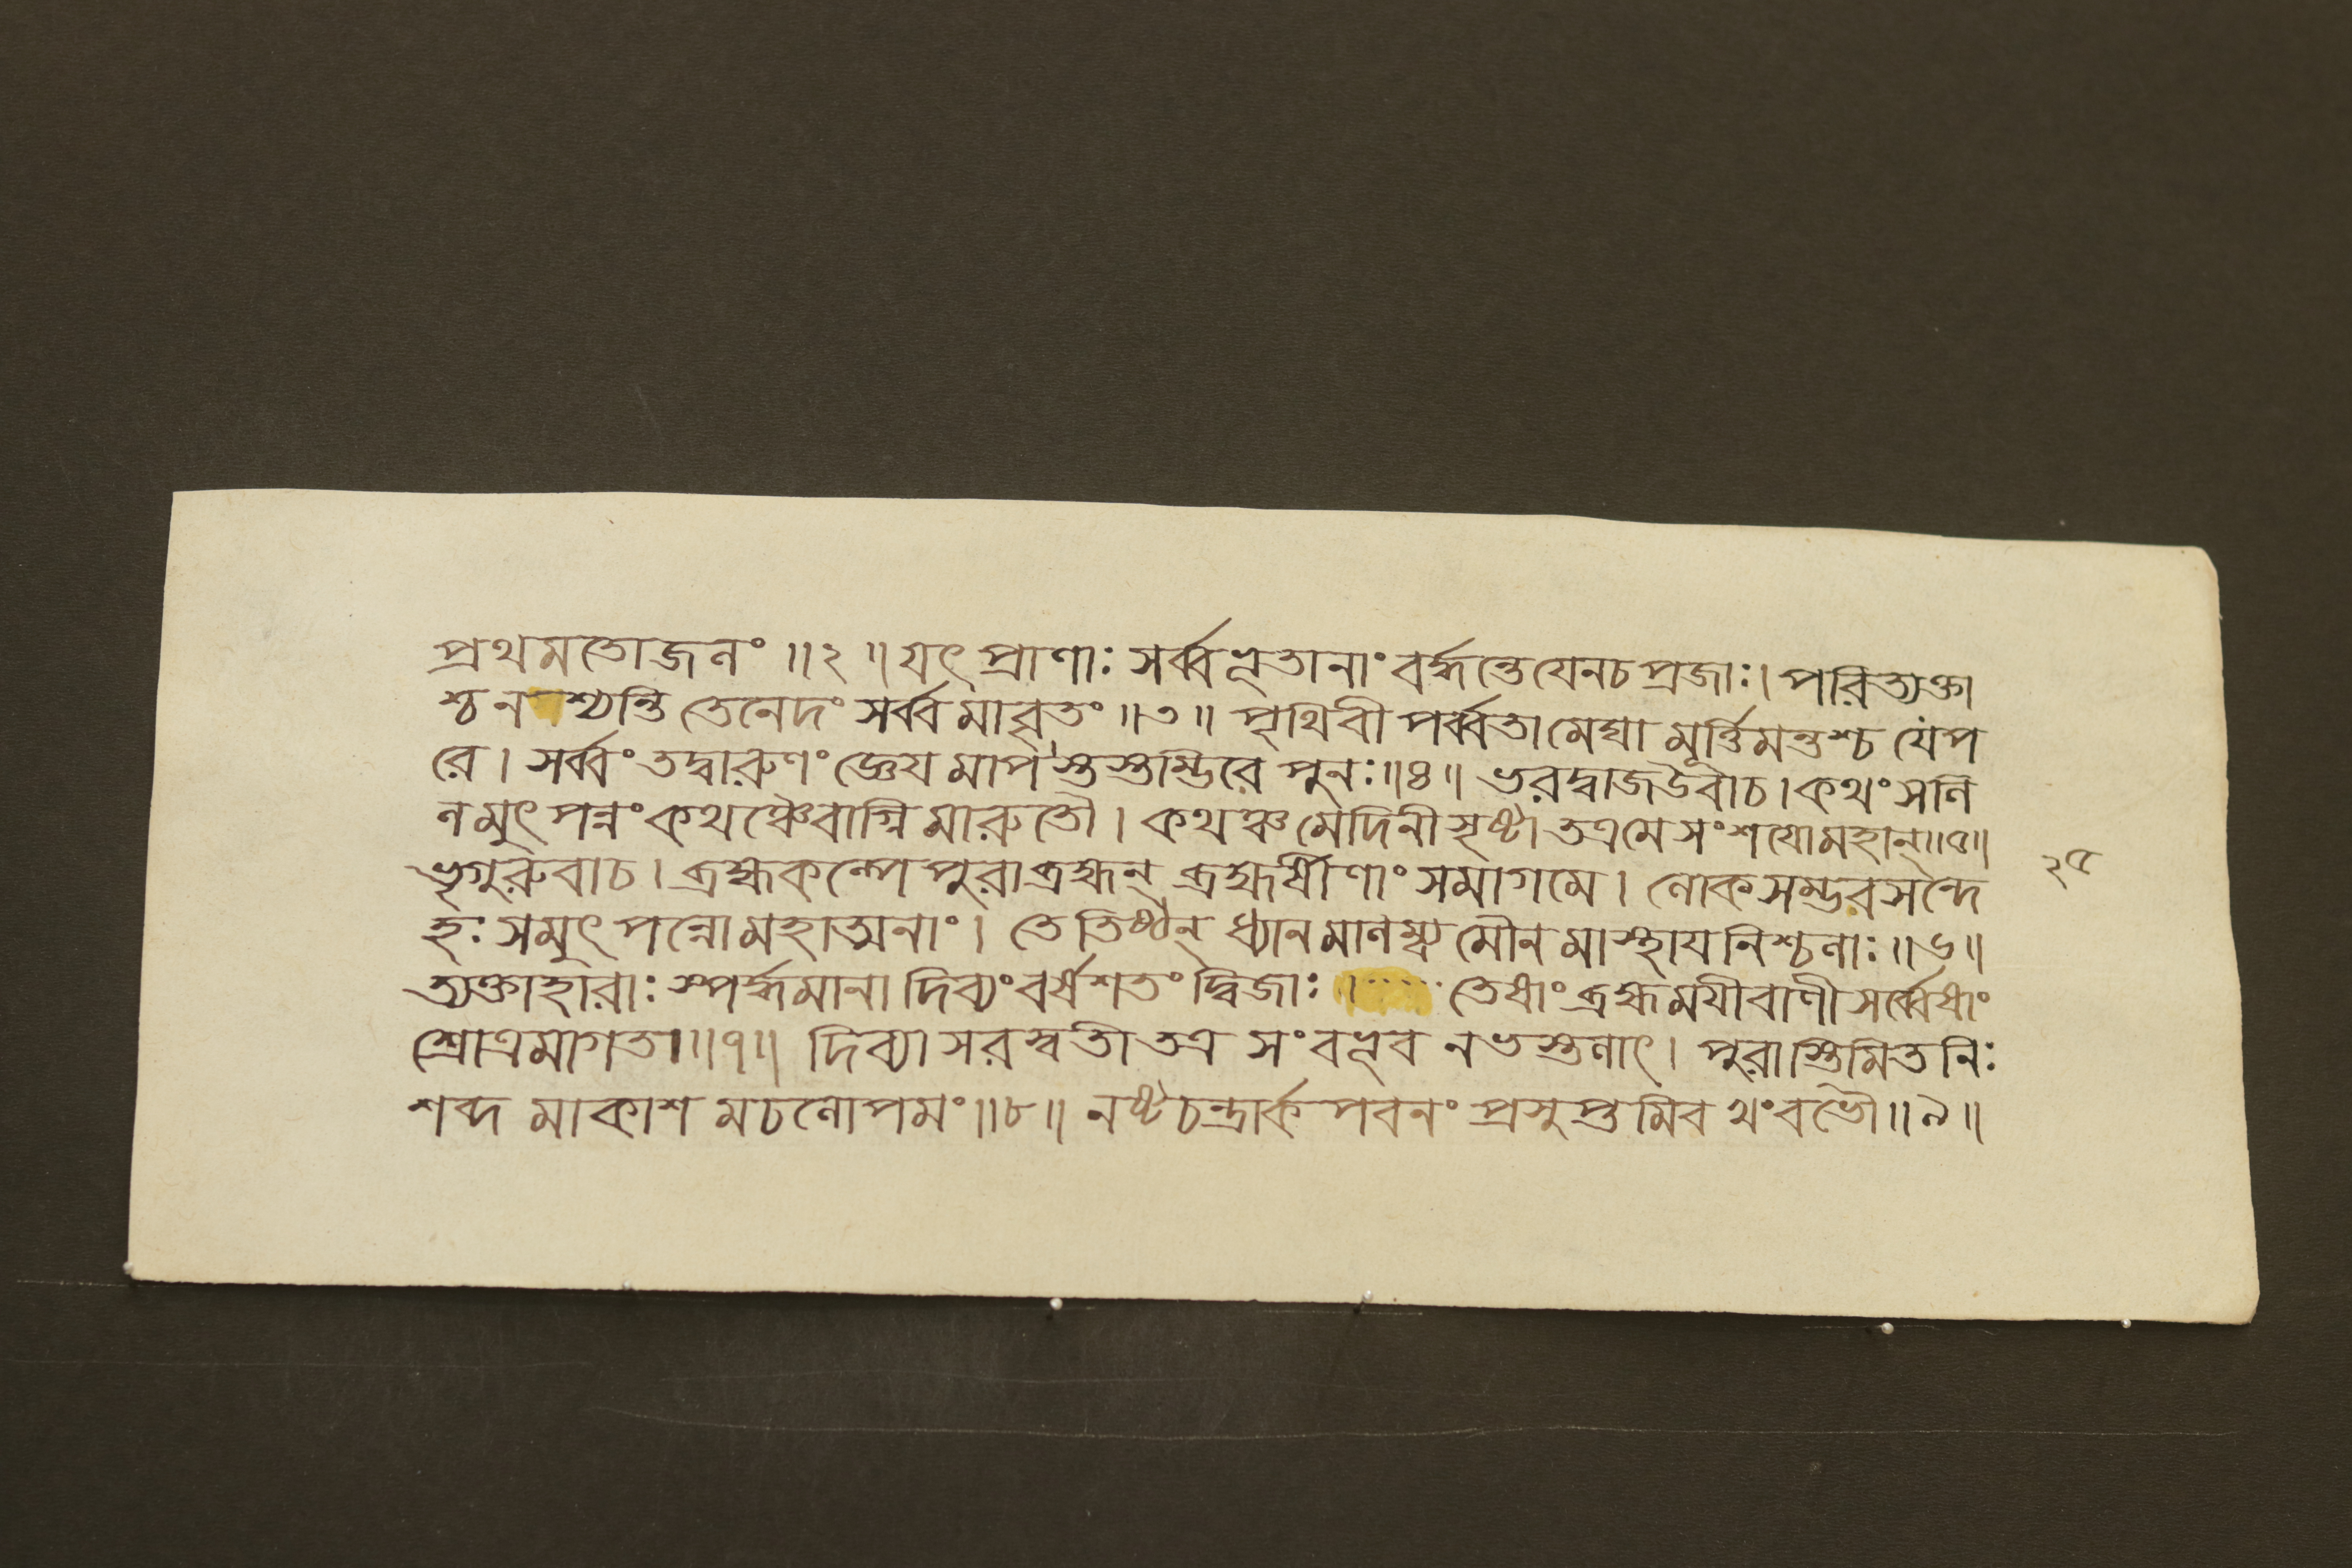 প্রথমতোজনং ॥২॥ যৎ প্রাণাঃ সর্ব্বভূতানাং বর্দ্ধন্তে যেনচ প্রজাঃ। পরিত্যক্তা
শ্চ নশ্যন্তি তেনেদং সর্ব্বমাবৃতং ॥৩॥ পৃথিবী পর্ব্বতা মেঘা মূর্ত্তিমন্তশ্চ যেপ
রে। সর্ব্বং তদ্বারুণং জ্ঞেয মাপস্তস্তম্ভিরে পুনঃ॥৪॥ ভরদ্বাজউবাচ। কথং সলি
লমুৎ পন্নং কথঞ্চৈবাগ্নি মারুতৌ। কথঞ্চ মেদিনী সৃষ্টা তত্রমে সংশযোমহান্॥৫॥
ভৃগুরুবাচ। ব্রহ্মকল্পে পুরা ব্রহ্মন্ ব্রহ্মর্ষীণাং সমাগমে। লোক সম্ভব সন্দে
হঃ সমুৎ পন্নো মহাত্মনাং। তে তিষ্ঠন্ ধ্যান মালম্ব্য মৌন মাস্থায নিশ্চলাঃ॥৬॥
ত্যক্তাহারাঃ স্পর্দ্ধমানা দিব্যং বর্ষ শতং দ্বিজাঃ। তেষাং ব্রহ্মমযীবাণী সর্ব্বেষাং
শ্রোত্রমাগতা॥৭॥ দিব্যা সরস্বতী তত্র সংবভূব নভস্তলাৎ। পুরাস্তিমিত নিঃ
শব্দ মাকাশ মচলোপমং॥৮॥ নষ্ট চন্দ্রার্ক পবনং প্রসুপ্ত মিব খংবভৌ॥৯॥
২৫